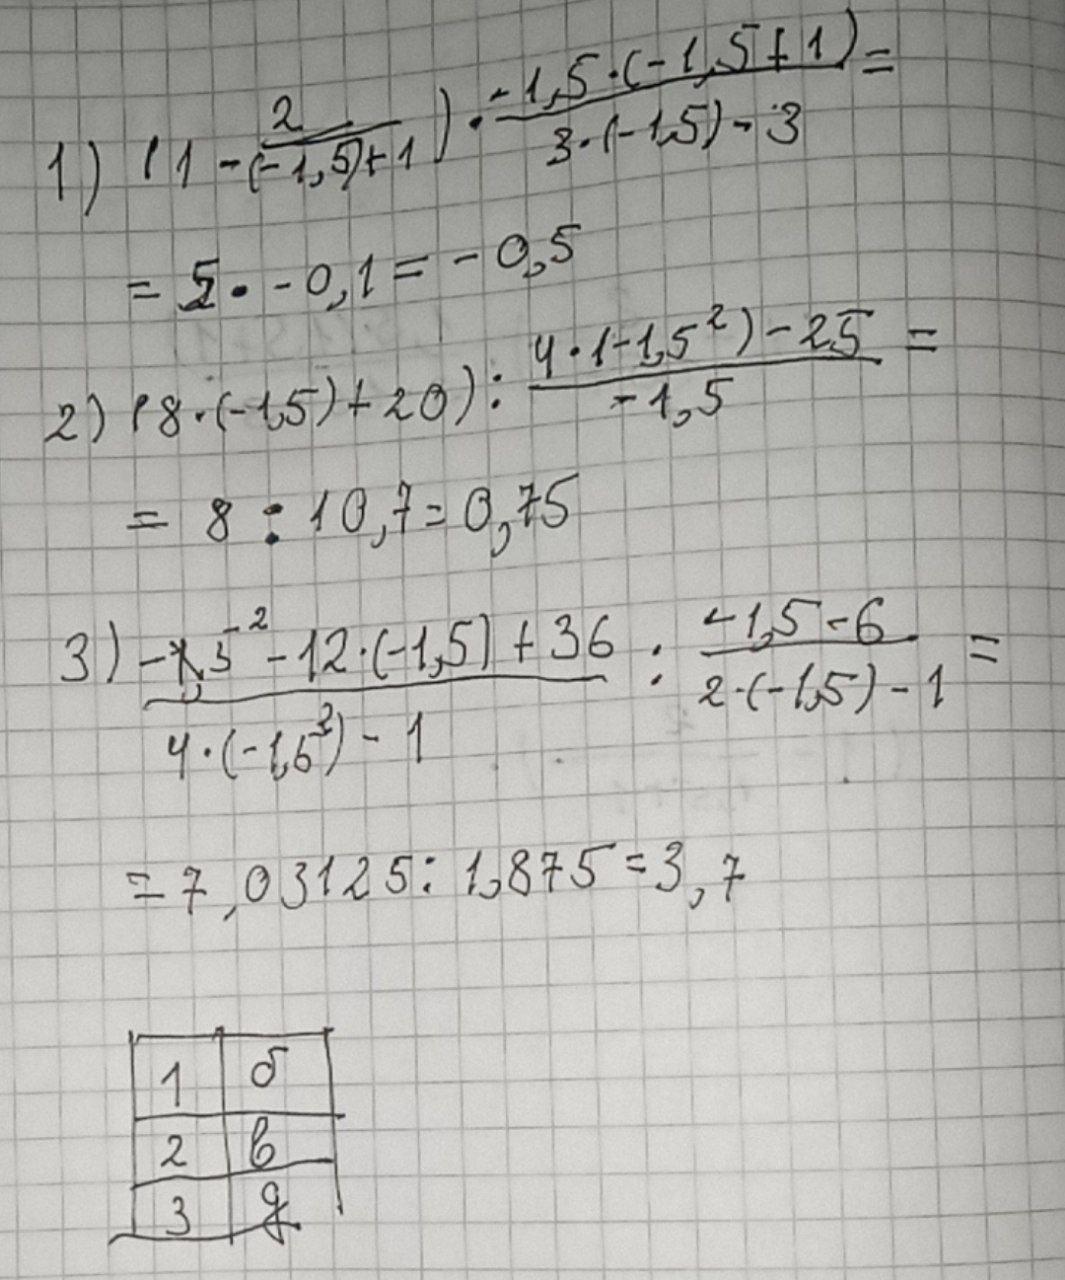 1) (1 - 2/((-1,5)+1)) · (-1,5·(-1,5+1))/(3·(-1,5)-3) =
= 5 · -0,1 = -0,5
2) (8·(-1,5)+20) : (4·(-1,5²)-25)/(-1,5) =
= 8 : 10,7 = 0,75
3) (-1,5² - 12·(-1,5)+36)/(4·(-1,5²)-1) : (-1,5-6)/(2·(-1,5)-1) =
= 7,03125 : 1,875 = 3,7
1 б
2 в
3 д